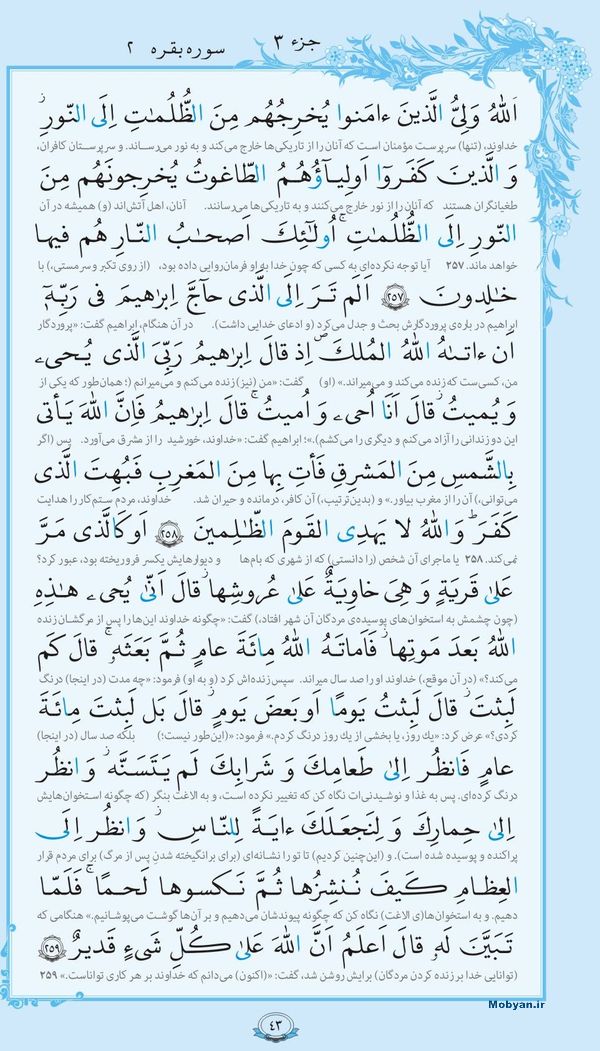 جزء ٣
سوره بقره ٢
اَللّٰهُ وَلِیُّ الَّذینَ ءامَنوا یُخرِجُهُم مِنَ الظُّلُمٰتِ اِلَی النّورِ ۖ
خداوند، (تنها) سرپرست مؤمنان است که آنان را از تاریکی‌ها خارج می‌کند و به نور می‌رساند. و سرپرستان کافران،
وَ الَّذینَ کَفَرُوٓا اَولِیـآؤُهُمُ الطّاغوتُ یُخرِجونَهُم مِنَ
طغیانگران هستند که آنان را از نور خارج می‌کنند و به تاریکی‌ها می‌رسانند. آنان، اهل آتش‌اند (و) همیشه در آن
النّورِ اِلَی الظُّلُمٰتِ ۚ اُولٰٓئِکَ اَصحٰبُ النّارِ هُم فیها
خواهد ماند. ٢٥٧ آیا توجه نکرده‌ای به کسی که چون خدا به او فرمان‌روایی داده بود، (از روی تکبر و سرمستی،) با
خٰلِدونَ ﴿٢٥٧﴾ اَلَم تَرَ اِلَی الَّذی حآجَّ اِبرٰهیمَ فی رَبِّهٖٓ
ابراهیم در باره‌ی پروردگارش بحث و جدل می‌کرد (و ادعای خدایی داشت). در آن هنگام، ابراهیم گفت: «پروردگار
اَن ءاتىٰهُ اللّٰهُ المُلکَ ۘ اِذ قالَ اِبرٰهیمُ رَبِّیَ الَّذی یُحیٖ
من، کسی‌ست که زنده می‌کند و می‌میراند.» (او) گفت: «من (نیز) زنده می‌کنم و می‌میرانم (؛ همان‌طور که یکی از
وَ یُمیتُ ۙ قالَ اَنَا اُحیٖ وَ اُمیتُ ۚ قالَ اِبرٰهیمُ فَاِنَّ اللّٰهَ یَأتی
این دو زندانی را آزاد می‌کنم و دیگری را می‌کشم).»؛ ابراهیم گفت: «خداوند، خورشید را از مشرق می‌آورد. پس (اگر
بِالشَّمسِ مِنَ المَشرِقِ فَأتِ بِها مِنَ المَغرِبِ فَبُهِتَ الَّذی
می‌توانی،) آن را از مغرب بیاور.» و (بدین‌ترتیب،) آن کافر، درمانده و حیران شد. خداوند، مردم ستم‌کار را هدایت
کَفَرَ ۗ وَ اللّٰهُ لا یَهدِی القَومَ الظّٰلِمینَ ﴿٢٥٨﴾ اَو کَالَّذی مَرَّ
نمی‌کند. ٢٥٨ یا ماجرای آن شخص (را دانستی) که از شهری که بام‌ها و دیوارهایش یکسر فروریخته بود، عبور کرد؟
عَلیٰ قَریَةٍ وَ هِیَ خاوِیَةٌ عَلیٰ عُروشِها ۖ قالَ اَنّیٰ یُحیٖ هٰذِهِ
(چون چشمش به استخوان‌های پوسیده‌ی مردگان آن شهر افتاد،) گفت: «چگونه خداوند این‌ها را پس از مرگشان زنده
اللّٰهُ بَعدَ مَوتِها ۖ فَاَماتَهُ اللّٰهُ مِائَةَ عامٍ ثُمَّ بَعَثَهٗ ۚ قالَ کَم
می‌کند؟» (در آن موقع،) خداوند او را صد سال میراند. سپس زنده‌اش کرد (و به او) فرمود: «چه مدت (در اینجا) درنگ
لَبِثتَ ۖ قالَ لَبِثتُ یَومًا اَو بَعضَ یَومٍ ۖ قالَ بَل لَبِثتَ مِائَةَ
کردی؟» عرض کرد: «یك روز، یا بخشی از یك روز درنگ کردم.» فرمود: «(این‌طور نیست؛) بلکه صد سال (در اینجا)
عامٍ فَانظُر اِلیٰ طَعامِکَ وَ شَرابِکَ لَم یَتَسَنَّه ۖ وَ انظُر
درنگ کرده‌ای. پس به غذا و نوشیدنی‌ات نگاه کن که تغییر نکرده است، و به الاغت بنگر (که چگونه استخوان‌هایش
اِلیٰ حِمارِکَ وَ لِنَجعَلَکَ ءایَةً لِلنّاسِ ۖ وَ انظُر اِلَی
پراکنده و پوسیده شده است). و (این‌چنین کردیم) تا تو را نشانه‌ای (برای برانگیخته شدنِ پس از مرگ) برای مردم قرار
العِظامِ کَیفَ نُنشِزُها ثُمَّ نَکسوها لَحمًا ۚ فَلَمّا
دهیم. و به استخوان‌ها(ی الاغت) نگاه کن که چگونه پیوندشان می‌دهیم و بر آن‌ها گوشت می‌پوشانیم.» هنگامی که
تَبَیَّنَ لَهٗ قالَ اَعلَمُ اَنَّ اللّٰهَ عَلیٰ کُلِّ شَیءٍ قَدیرٌ ﴿٢٥٩﴾
(توانایی خدا بر زنده کردن مردگان) برایش روشن شد، گفت: «(اکنون) می‌دانم که خداوند بر هر کاری تواناست.» ٢٥٩
Mobyan.ir
٤٣